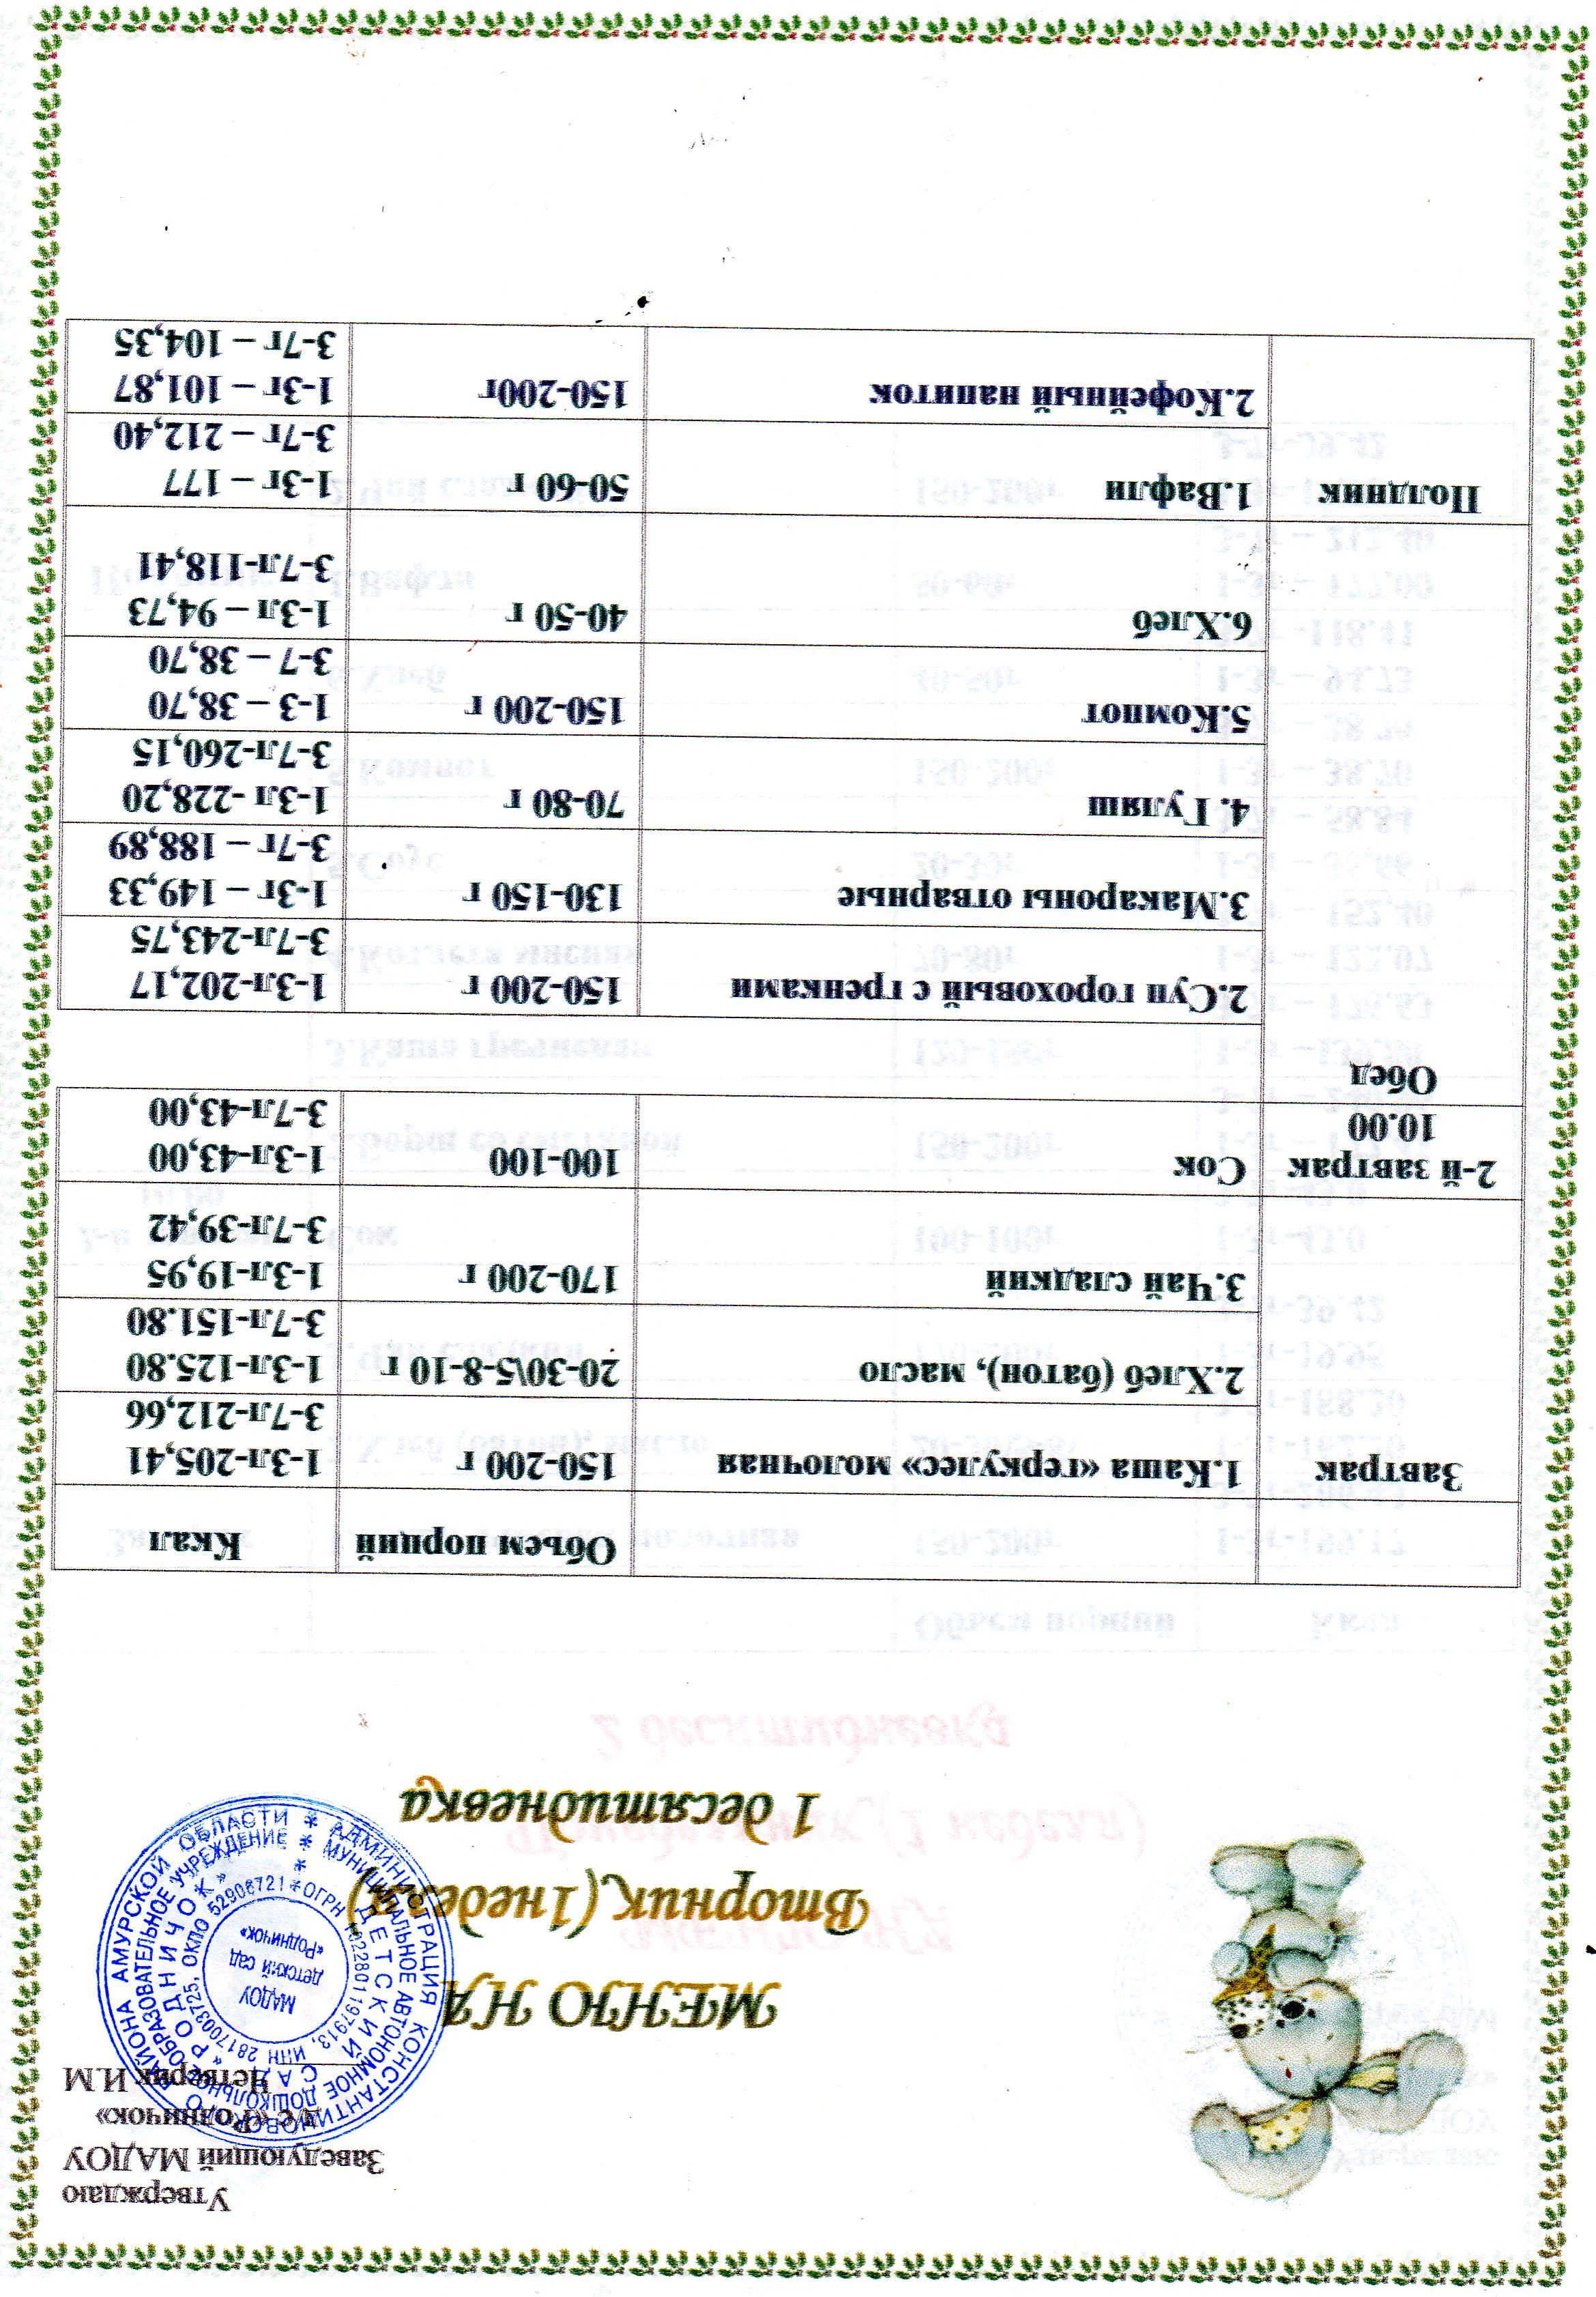 Утверждаю
Заведующий МАДОУ
д/с «Родничок»
Четверик И.М
АДМИНИСТРАЦИЯ КОНСТАНТИНОВСКОГО РАЙОНА АМУРСКОЙ ОБЛАСТИ *
МУНИЦИПАЛЬНОЕ АВТОНОМНОЕ ДОШКОЛЬНОЕ ОБРАЗОВАТЕЛЬНОЕ УЧРЕЖДЕНИЕ *
ДЕТСКИЙ САД «РОДНИЧОК» *
ОГРН 1022801197913, ИНН 2817003725, ОКПО 52906721 *
МАДОУ
детский сад
«Родничок»
МЕНЮ НА
Вторник,(1неделя)
1 десятидневка
Объем порций Ккал
Завтрак 1.Каша «геркулес» молочная 150-200 г 1-3л-205,41
3-7л-212,66
2.Хлеб (батон), масло 20-30\5-8-10 г 1-3л-125.80
3-7л-151.80
3.Чай сладкий 170-200 г 1-3л-19,95
3-7л-39,42
2-й завтрак Сок 100-100 1-3л-43,00
10.00 3-7л-43,00
Обед
2.Суп гороховый с гренками 150-200 г 1-3л-202,17
3-7л-243,75
3.Макароны отварные 130-150 г 1-3г – 149,33
3-7г – 188,89
4. Гуляш 70-80 г 1-3л -228,20
3-7л-260,15
5.Компот 150-200 г 1-3 – 38,70
3-7 – 38,70
6.Хлеб 40-50 г 1-3л – 94,73
3-7л-118,41
Полдник 1.Вафли 50-60 г 1-3г – 177
3-7г – 212,40
2.Кофейный напиток 150-200г 1-3г – 101,87
3-7г – 104,35